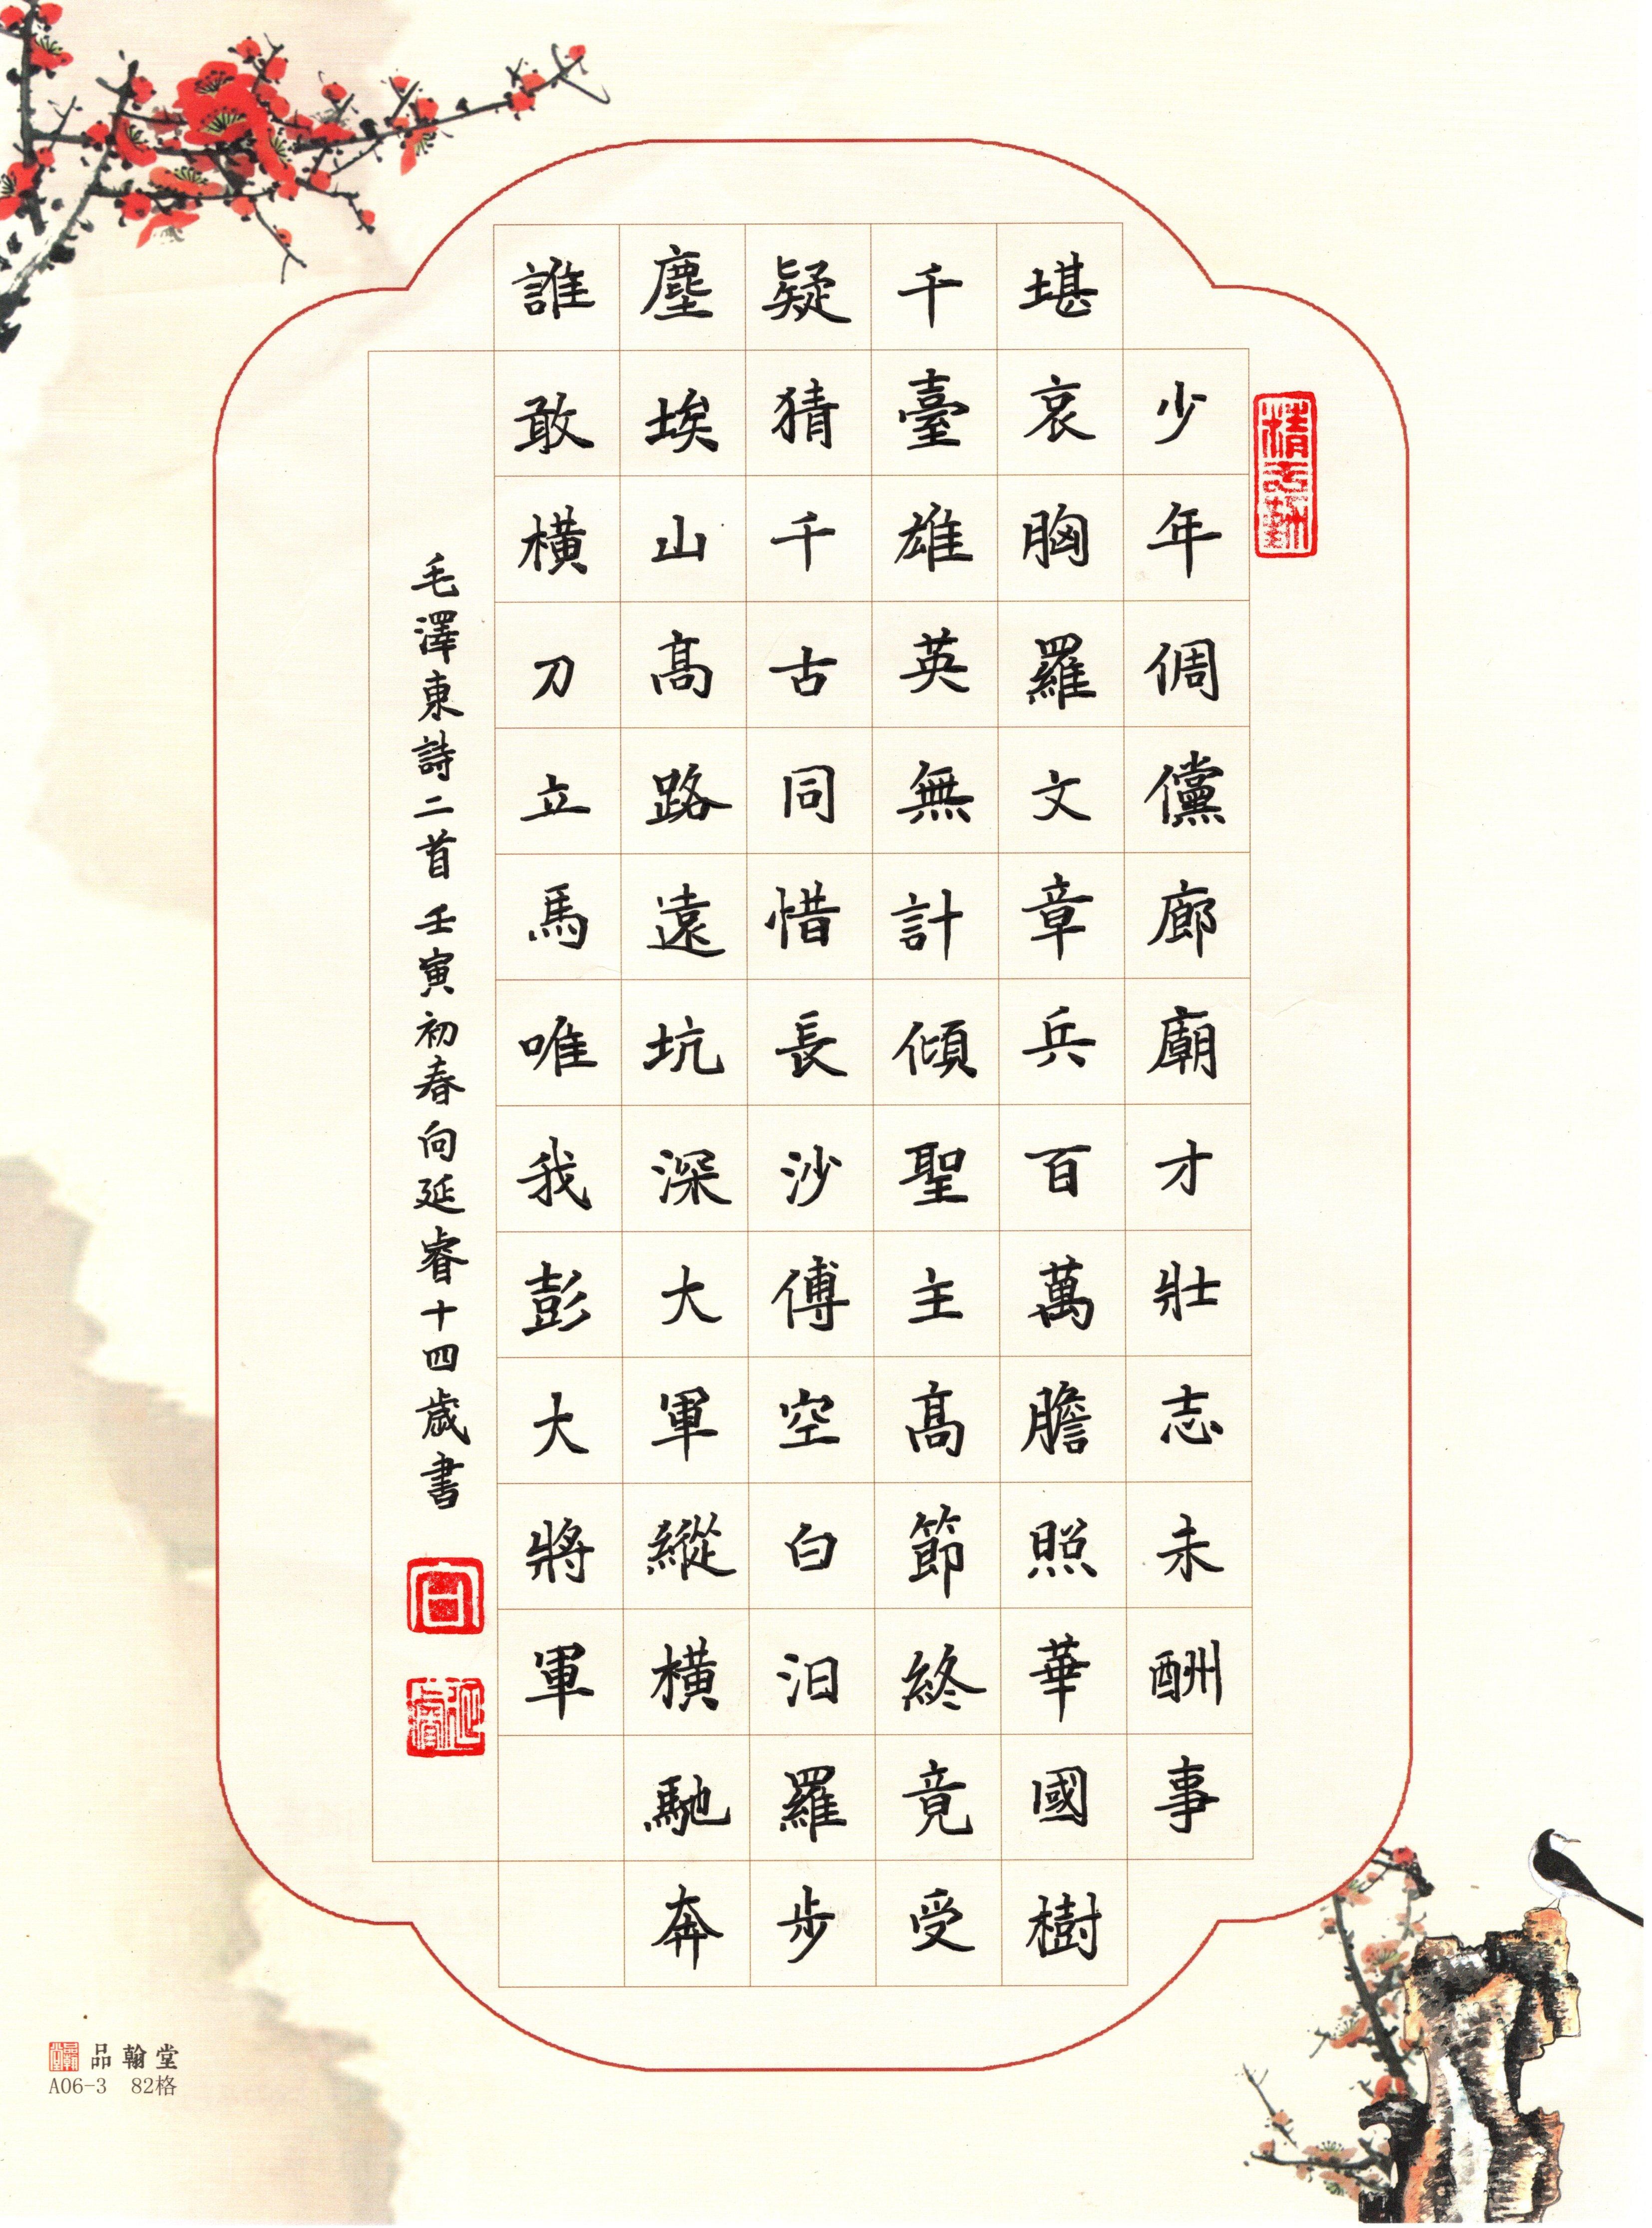 少年倜儻廊廟才壯志未酬事
堪哀胸羅文章兵百萬膽照華國樹
千臺雄英無計傾聖主高節終竟受
疑猜千古同惜長沙傅空白汨羅步
塵埃山高路遠坑深大軍縱橫馳奔
誰敢橫刀立馬唯我彭大將軍
毛澤東詩二首壬寅初春向延睿十四歲書
品翰堂
A06-3 82格